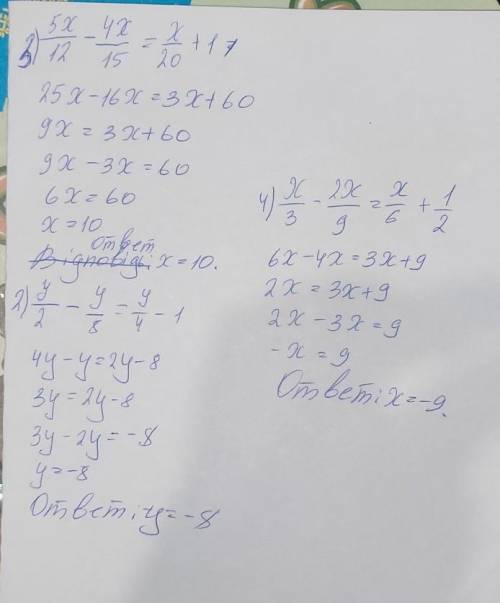 3) 5x/12 - 4x/15 = x/20 + 1,
25x-16x=3x+60
9x=3x+60
9x-3x=60
6x=60
x=10
ответ
Відповідь: x=10.
2) y/2 - y/8 = y/4 - 1
4y-y=2y-8
3y=2y-8
3y-2y=-8
y=-8
Ответ: y=-8
4) x/3 - 2x/9 = x/6 + 1/2
6x-4x=3x+9
2x=3x+9
2x-3x=9
-x=9
Ответ: x=-9.